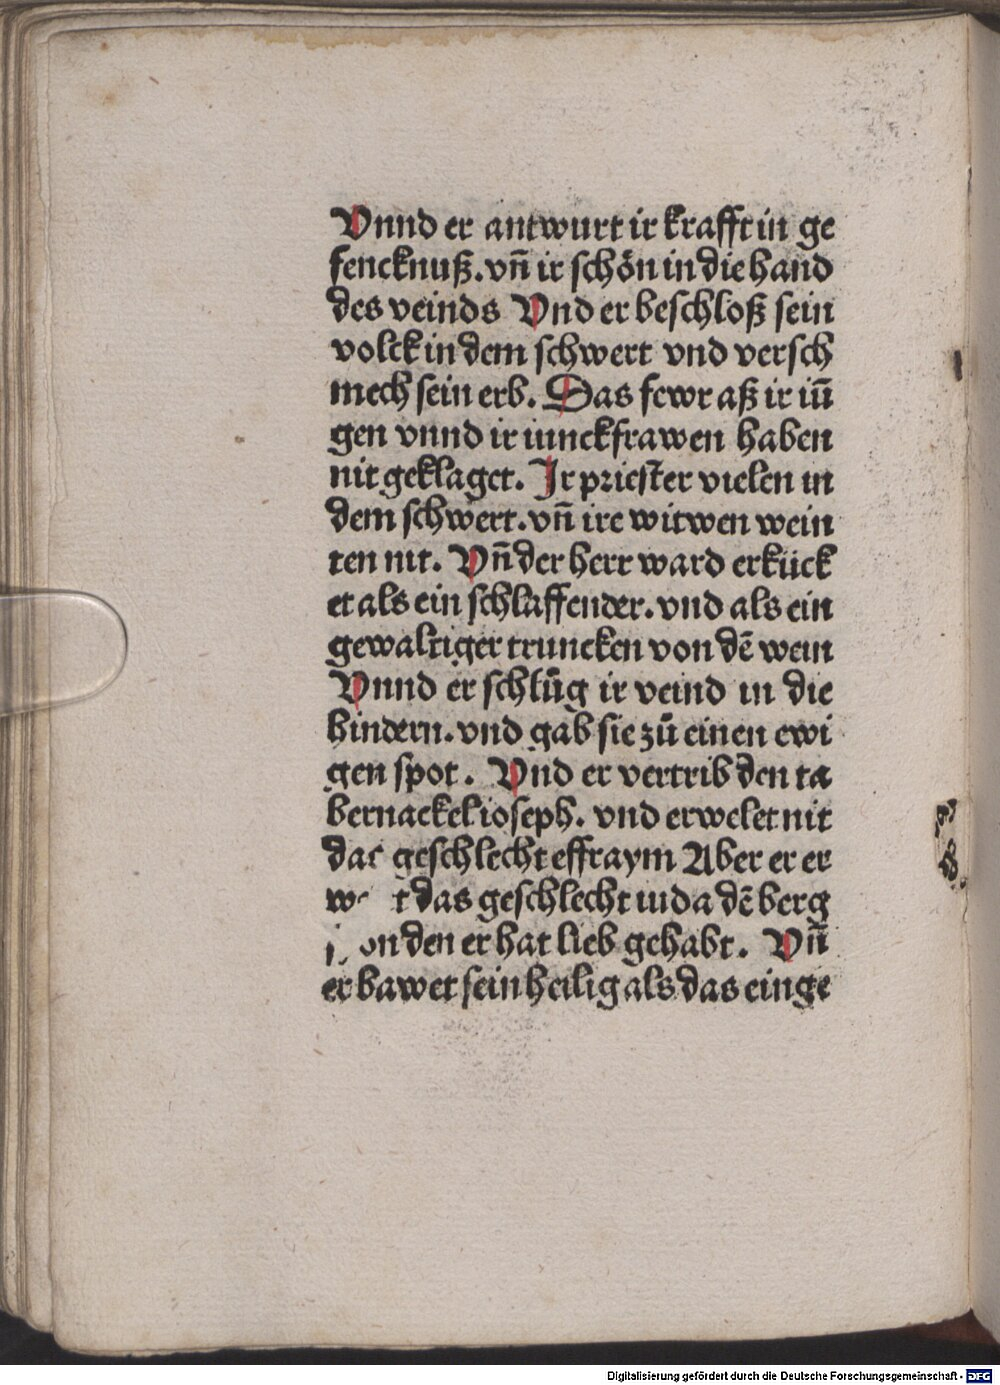 Vnnd er antwurt ir krafft in ge
fencknuß. vn̄ ir schön in die hand
des veinds Vnd er beschloß sein
volck in dem schwert vnd versch
mech sein erb. Das fewr aß ir iū
gen vnnd ir iunckfrawen haben
nit geklaget. Ir priester vielen in
dem schwert. vn̄ ire witwen wein
ten nit. Vn̄ der herr ward erkück
et als ein schlaffender. vnd als ein
gewaltiger truncken von dē wein
Vnnd er schlůg ir veind in die
hindern. vnd gab sie zů einen ewi
gen spot. Vnd er vertrib den ta
bernackel ioseph. vnd erwelet nit
das geschlecht effraym Aber er er
das geschlecht iuda dē berg
den er hat lieb gehabt. Vn̄
er bawet sein heilig als das einge
Digitalisierung gefördert durch die Deutsche Forschungsgemeinschaft - DFG